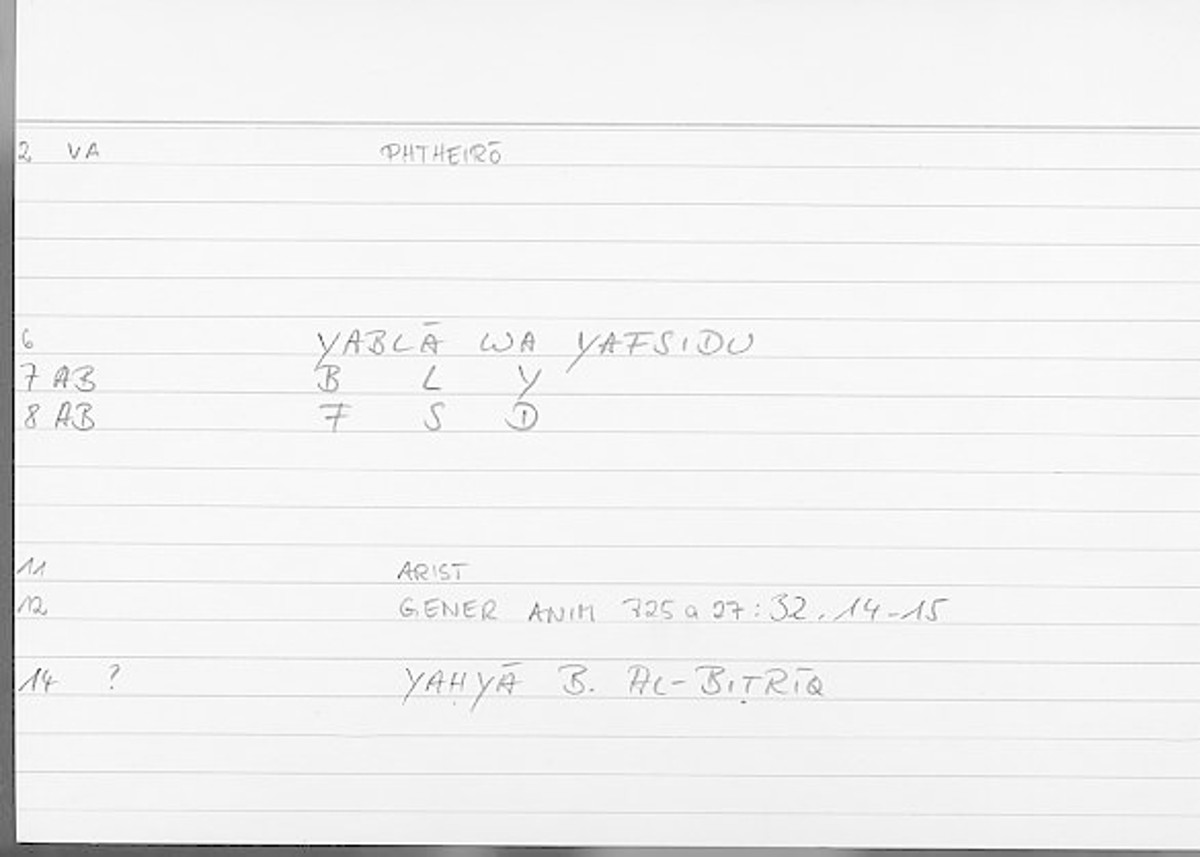 2 VA PHTHEIRŌ
6 YABLĀ WA YAFSIDU
7 AB B L Y
8 AB F S D
11 ARIST
12 GENER ANIM 725 a 27 : 32. 14-15
14 ? YAḤYĀ B. AL-BIṬRĪQ